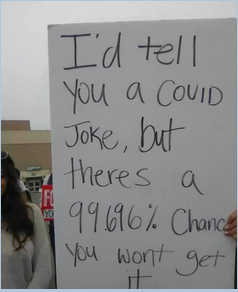 I'd tell
you a COVID
Joke, but
theres a
99.696% Chanc
you wont get
it